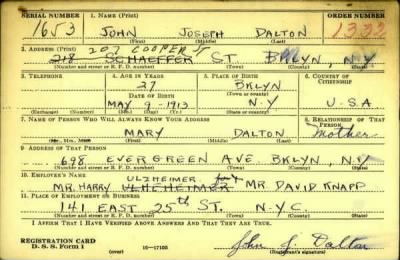 SERIAL NUMBER 1. NAME (Print) ORDER NUMBER
1653 JOHN JOSEPH DALTON 1332
(First) (Middle) (Last)
2. ADDRESS (Print) 207 COOPER ST
218 SCHAEFFER ST. BKLYN, N.Y
(Number and street or R. F. D. number) (Town) (County) (State)
3. TELEPHONE 4. AGE IN YEARS 5. PLACE OF BIRTH 6. COUNTRY OF CITIZENSHIP
27 BKLYN
DATE OF BIRTH (Town or county)
MAY 9 - 1913 N.Y U.S.A
(Exchange) (Number) (Mo.) (Day) (Yr.) (State or country)
7. NAME OF PERSON WHO WILL ALWAYS KNOW YOUR ADDRESS 8. RELATIONSHIP OF THAT PERSON
MARY DALTON Mother
(Mr., Mrs., Miss) (First) (Middle) (Last)
9. ADDRESS OF THAT PERSON
698 EVERGREEN AVE. BKLYN, N.Y
(Number and street or R. F. D. number) (Town) (County) (State)
10. EMPLOYER'S NAME ULZHEIMER
MR. HARRY ULHEHEIMER MR. DAVID KNAPP
11. PLACE OF EMPLOYMENT OR BUSINESS
141 EAST 25th ST. N.Y.C.
(Number and street or R. F. D. number) (Town) (County) (State)
I AFFIRM THAT I HAVE VERIFIED ABOVE ANSWERS AND THAT THEY ARE TRUE.
REGISTRATION CARD
D. S. S. Form 1 (over) 16-17105 John J. Dalton
(Registrant's signature)